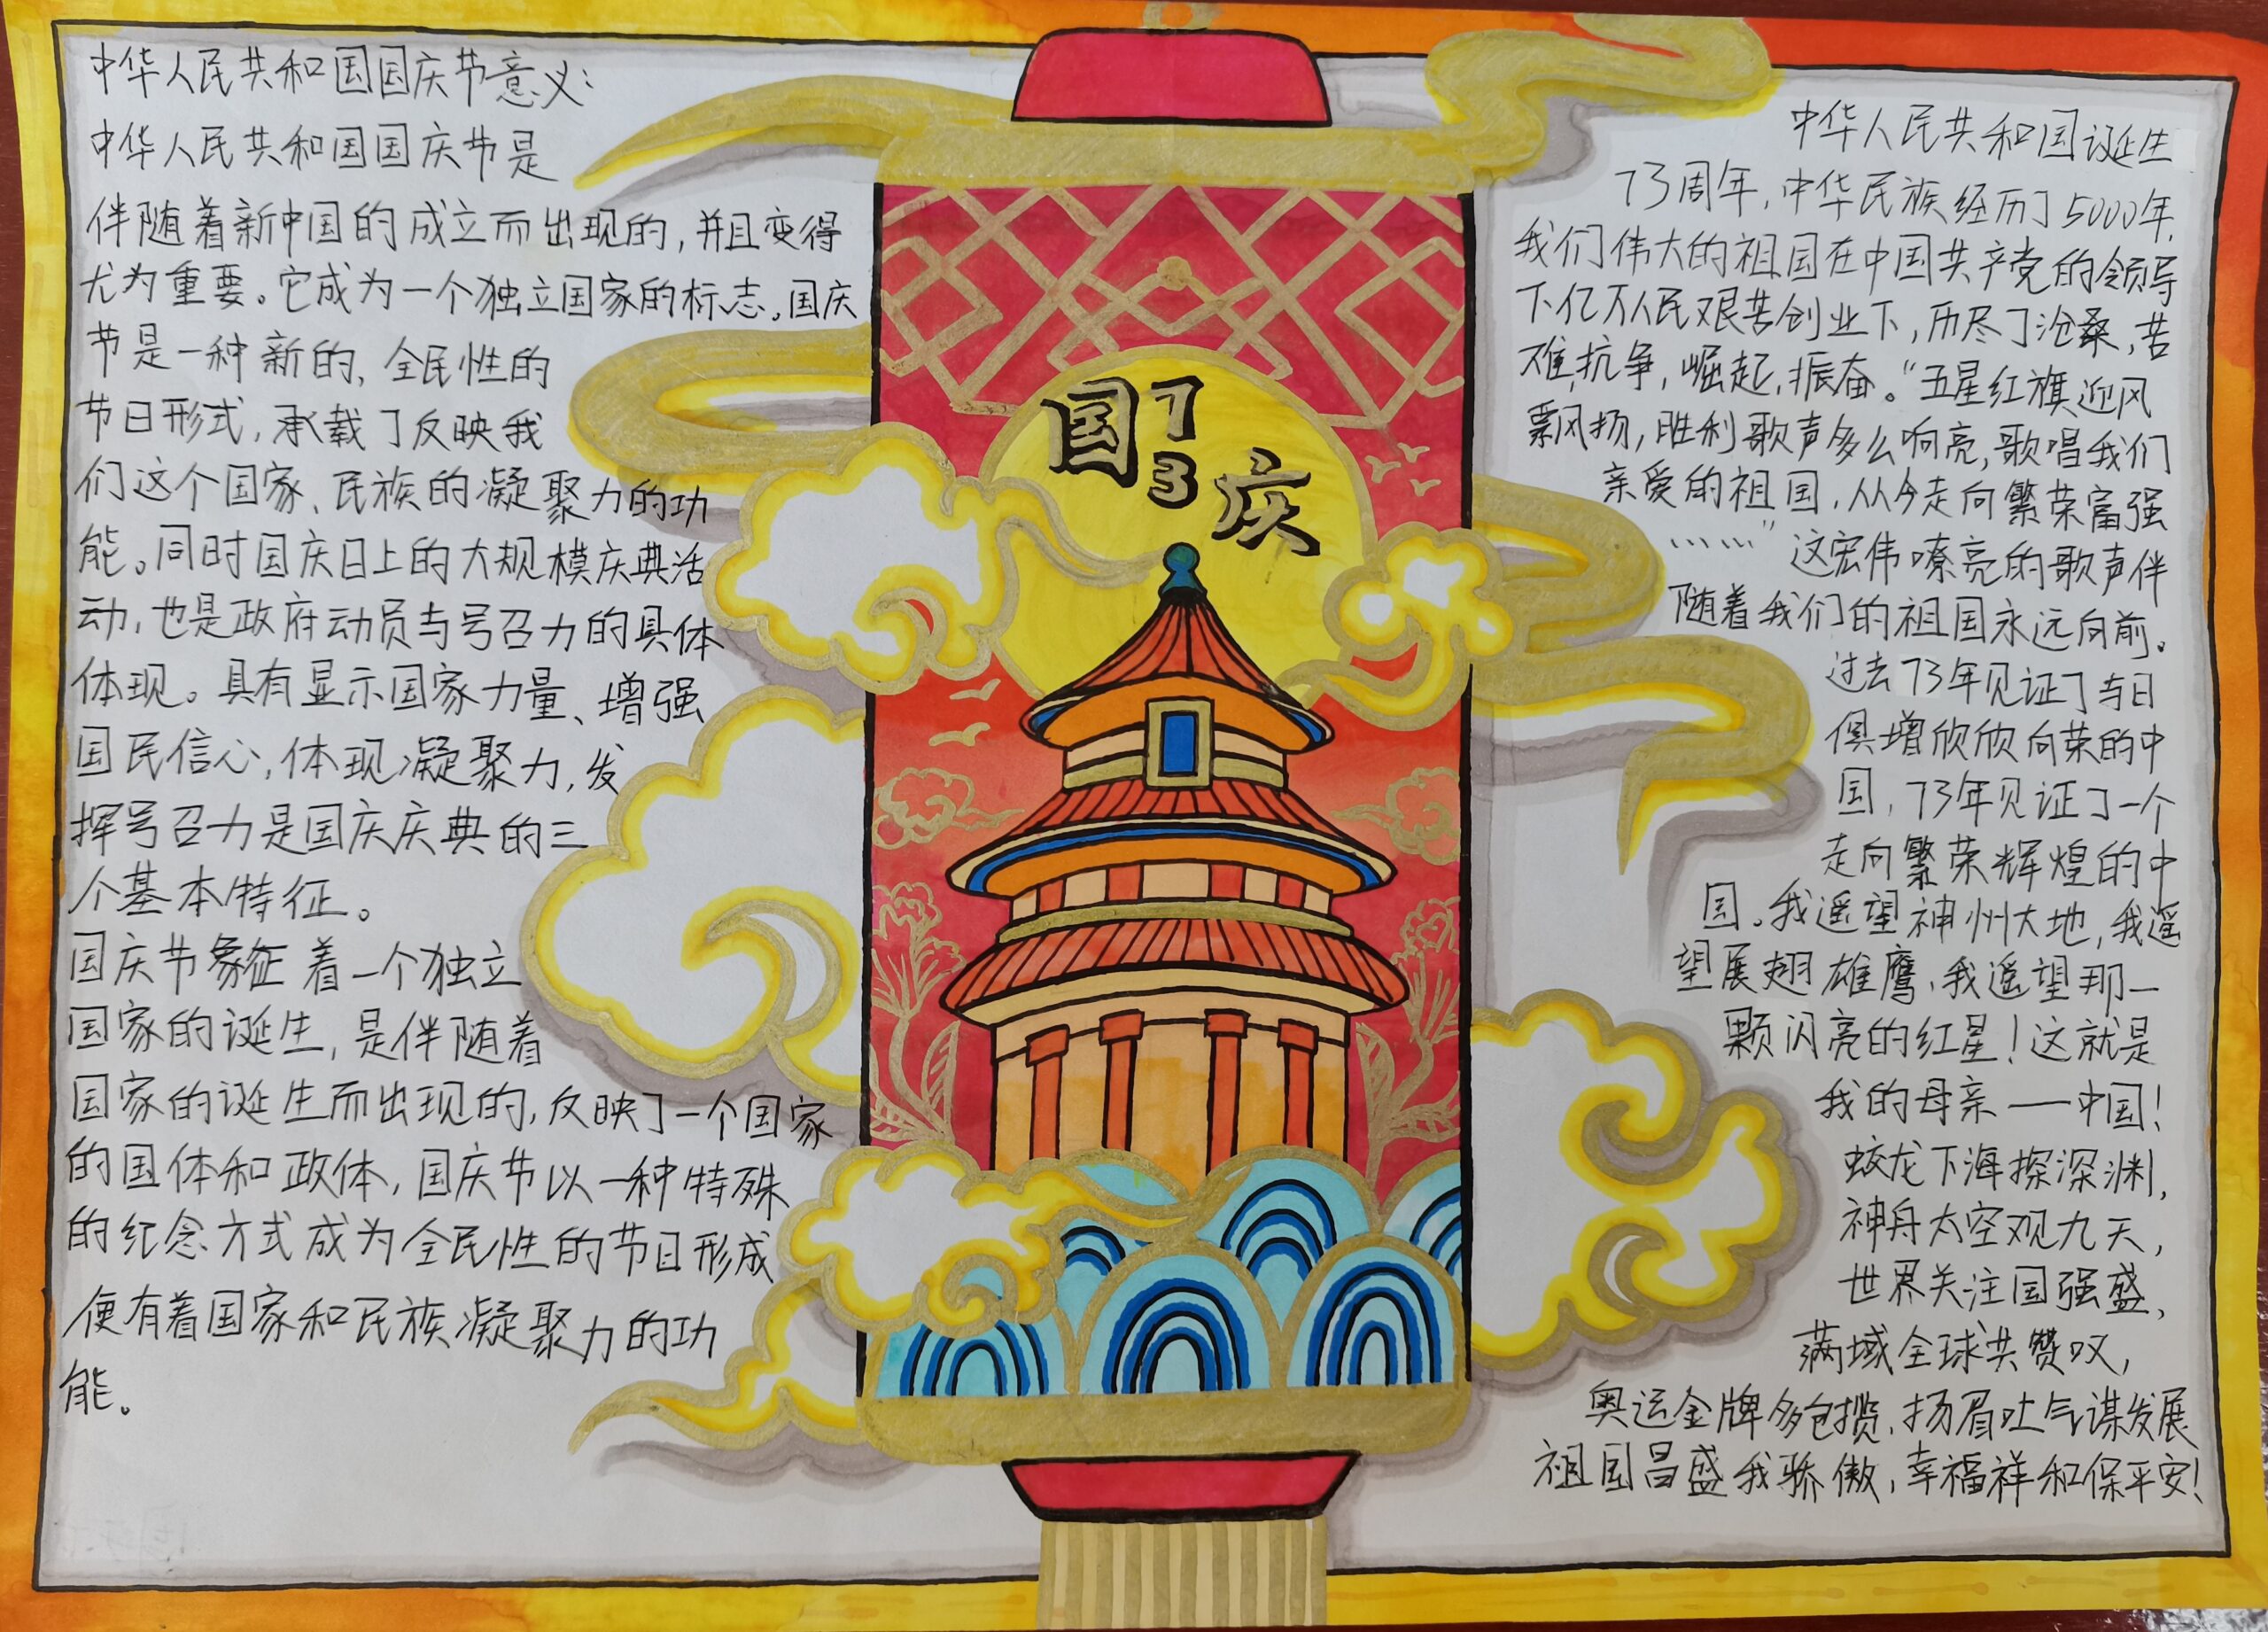 中华人民共和国国庆节意义:
中华人民共和国国庆节是
伴随着新中国的成立而出现的,并且变得
尤为重要。它成为一个独立国家的标志。国庆
节是一种新的、全民性的
节日形式,承载了反映我
们这个国家、民族的凝聚力的功
能。同时国庆日上的大规模庆典活
动,也是政府动员与号召力的具体
体现。具有显示国家力量、增强
国民信心,体现凝聚力,发
挥号召力是国庆庆典的三
个基本特征。
国庆节象征着一个独立
国家的诞生,是伴随着
国家的诞生而出现的,反映了一个国家
的国体和政体,国庆节以一种特殊
的纪念方式成为全民性的节日形成
便有着国家和民族凝聚力的功
能。
国73庆
中华人民共和国诞生
73周年,中华民族经历了5000年,
我们伟大的祖国在中国共产党的领导
下亿万人民艰苦创业下,历尽了沧桑,苦
难,抗争,崛起,振奋。“五星红旗迎风
飘扬,胜利歌声多么响亮,歌唱我们
亲爱的祖国,从今走向繁荣富强
……”这宏伟嘹亮的歌声伴
随着我们的祖国永远向前。
过去73年见证了与日
俱增欣欣向荣的中
国,73年见证了一个
走向繁荣辉煌的中
国。我遥望神州大地,我遥
望展翅雄鹰,我遥望那一
颗闪亮的红星!这就是
我的母亲——中国!
蛟龙下海探深渊,
神舟太空观九天,
世界关注国强盛,
满域全球共赞叹,
奥运金牌多包揽,扬眉吐气谋发展
祖国昌盛我骄傲,幸福祥和保平安!